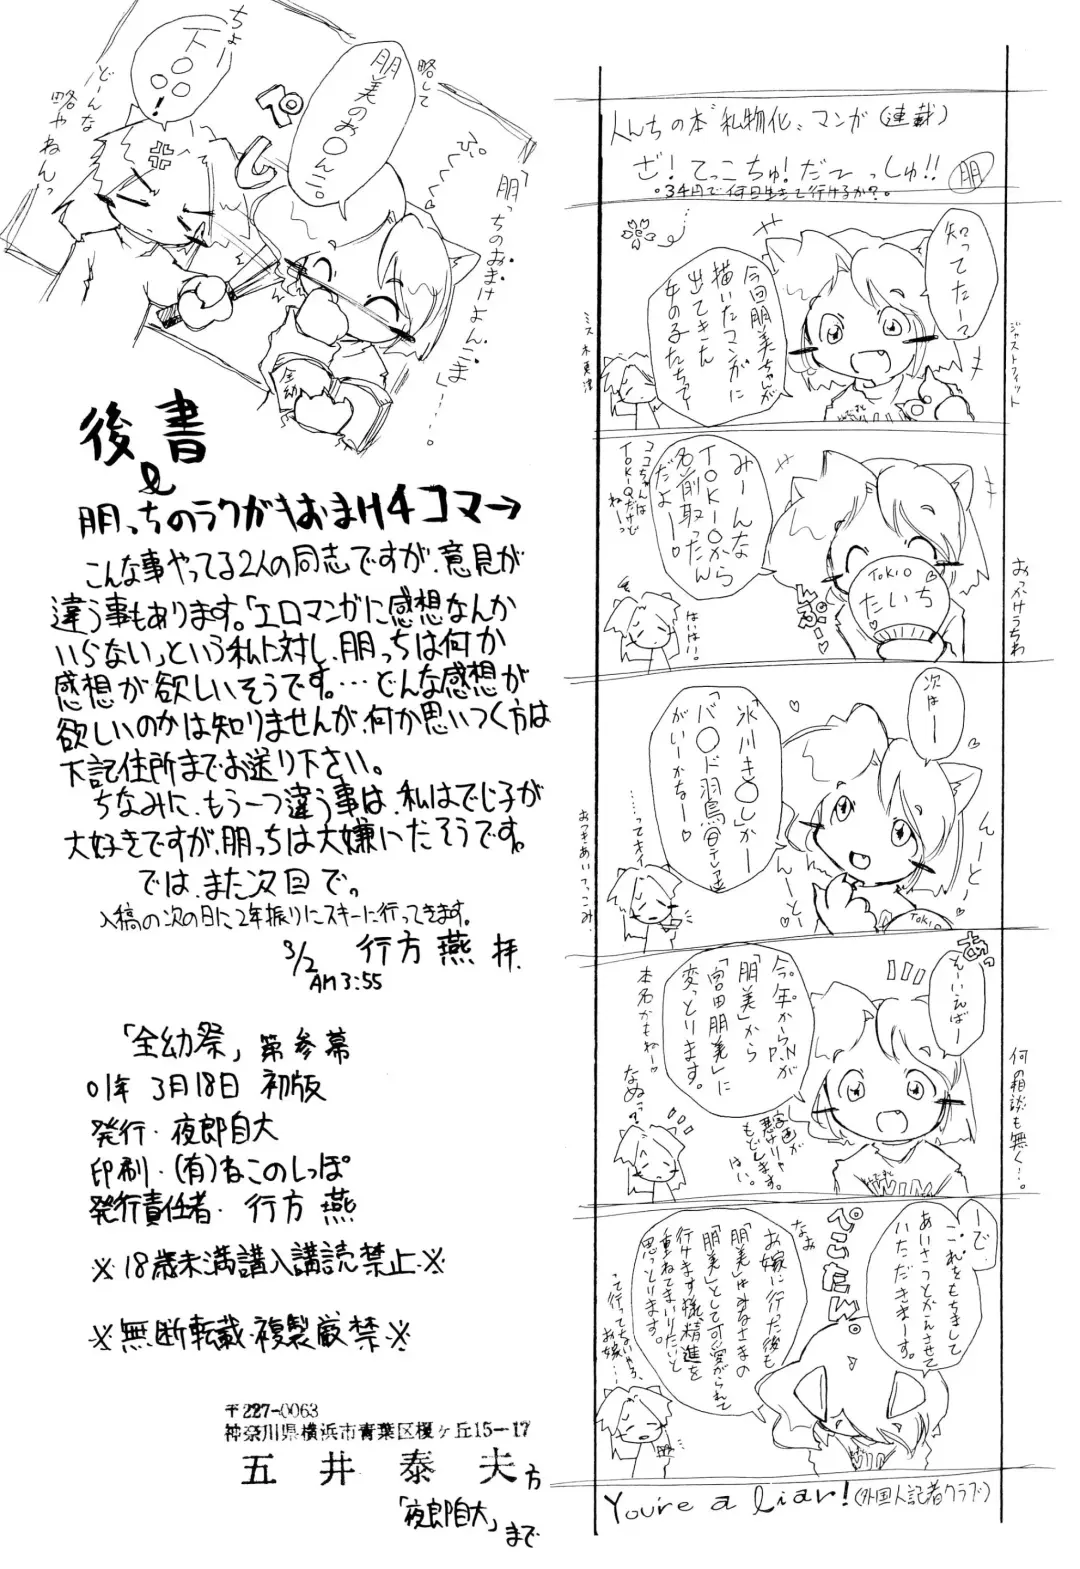 ちょー
下〇〇〇!
どーんな
略やねんっ
略して
朋美のお〇んこ。
ぺし
ぷくくく
「朋っちのおまけよんこま」…。
全幼
後書
&
朋っちのラクガキおまけ4コマ→
こんな事やってる2人の同志ですが、意見が
違う事もあります。「エロマンガに感想なんか
いらない」という私に対し、朋っちは何か
感想が欲しいそうです。…どんな感想が
欲しいのかは知りませんが、何か思いつく方は
下記住所までお送り下さい。
ちなみに、もう一つ違う事は、私はでじ子が
大好きですが、朋っちは大嫌いだそうです。
では、また次回で。
入稿の次の日に2年振りにスキーに行ってきます。
3/2 AM3:55
行方 燕 拝
「全幼祭」第参幕
01年 3月18日 初版
発行・夜郎自大
印刷・(有)ねこのしっぽ
発行責任者・行方 燕
※18歳未満講入講読禁止※
※無断転載・複製厳禁※
〒227-0063
神奈川県横浜市青葉区榎ヶ丘15-17
五井泰夫方
「夜郎自大」まで
人んちの本“私物化”マンガ(連載)
ざ!てっこちゅ!だーっしゅ!! 朋
。34円で何日生きて行けるか?。
知ってたー?
今回朋美ちゃんが
描いたマンガに
出てきた
女の子たちってー
ミス木更津
ジャストフィット
みーんな
TOKI〇から
名前取ったん
だよー♡
ココちゃんは
TOKI〇だけで
ねーっ
TOKIO
たいち
はいはい。
おっかけうちわ
次はー
「氷川き〇し」かー
「バ〇ド羽鳥@テレ逢」
がいーかなー♡
んーとー
んーとー
……ってオイ
おつきあいてっこみ。
TOKIO
あっ
そーいえばー
今年からP.Nが
「朋美」から
「宮田朋美」に
変っとります。
本名かもねー♡
なぬっ?
字画が
悪けりゃ
もどします。
はい。
何の相談も無く…。
WIM
ーで、
これをもちまして
あいさつとかえさせて
いただきまーす。
ぺこたん。
なお
お嫁に行った後も
「朋美」はみなさまの
「朋美」として可愛がられて
行けます様精進を
重ねてまいりたいと
思っとります。
って行ってないやろ、
お嫁…
You're a liar!(外国人記者クラブ)